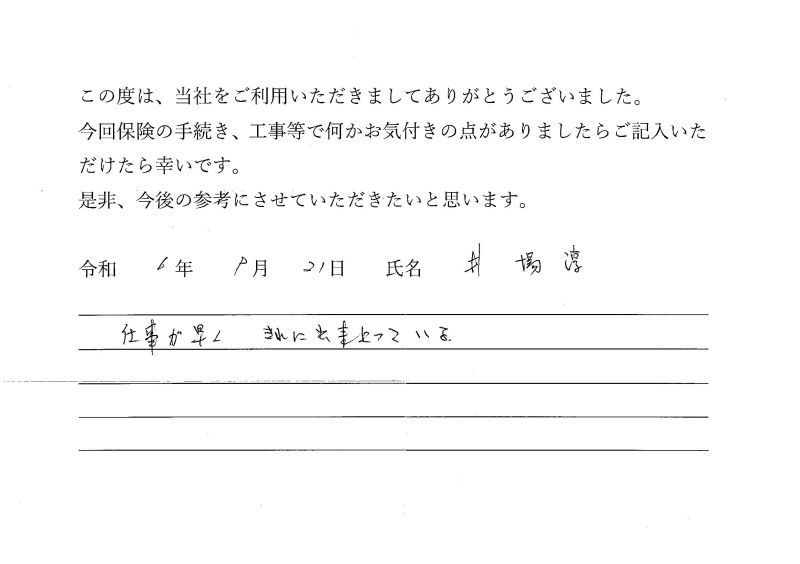 この度は、当社をご利用いただきましてありがとうございました。
今回保険の手続き、工事等で何かお気付きの点がありましたらご記入いた
だけたら幸いです。
是非、今後の参考にさせていただきたいと思います。
令和 6年 9月 21日 氏名 井場淳
仕事が早く きれに出来上っている